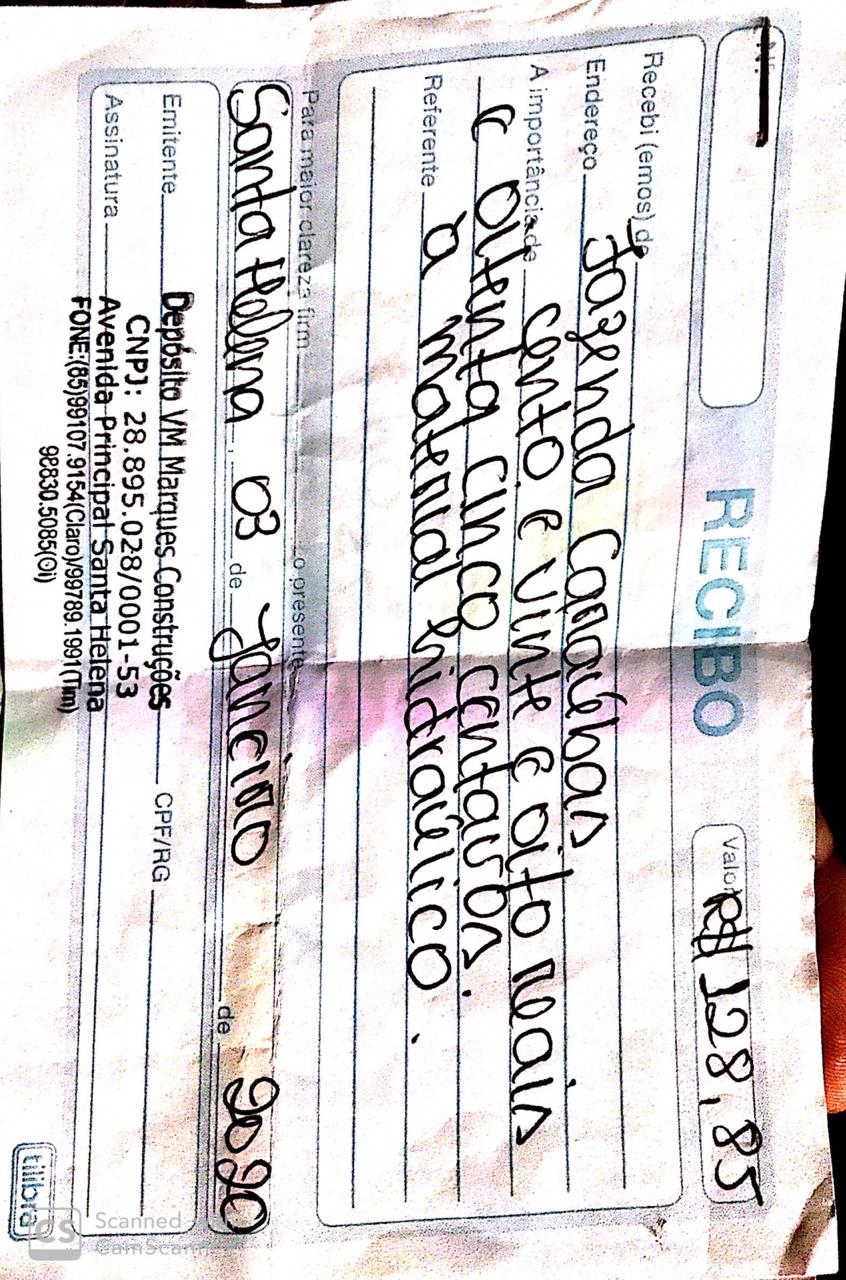 Nº
RECIBO
Valor R$ 128,85
Recebi (emos) de
Endereço Fazenda Capaúbas
A importância de cento e vinte e oito reais
e oitenta cinco centavos.
Referente a material hidraúlico.
Para maior clareza firm o presente
Santa Helena, 03 de Janeiro de 2020
Emitente Depósito VM Marques Construções CPF/RG
CNPJ: 28.895.028/0001-53
Assinatura Avenida Principal Santa Helena
FONE:(85)99107.9154(Claro)/99789.1991(Tim)
98830.5085(Oi)
tilibra
CS Scanned
CamScanner